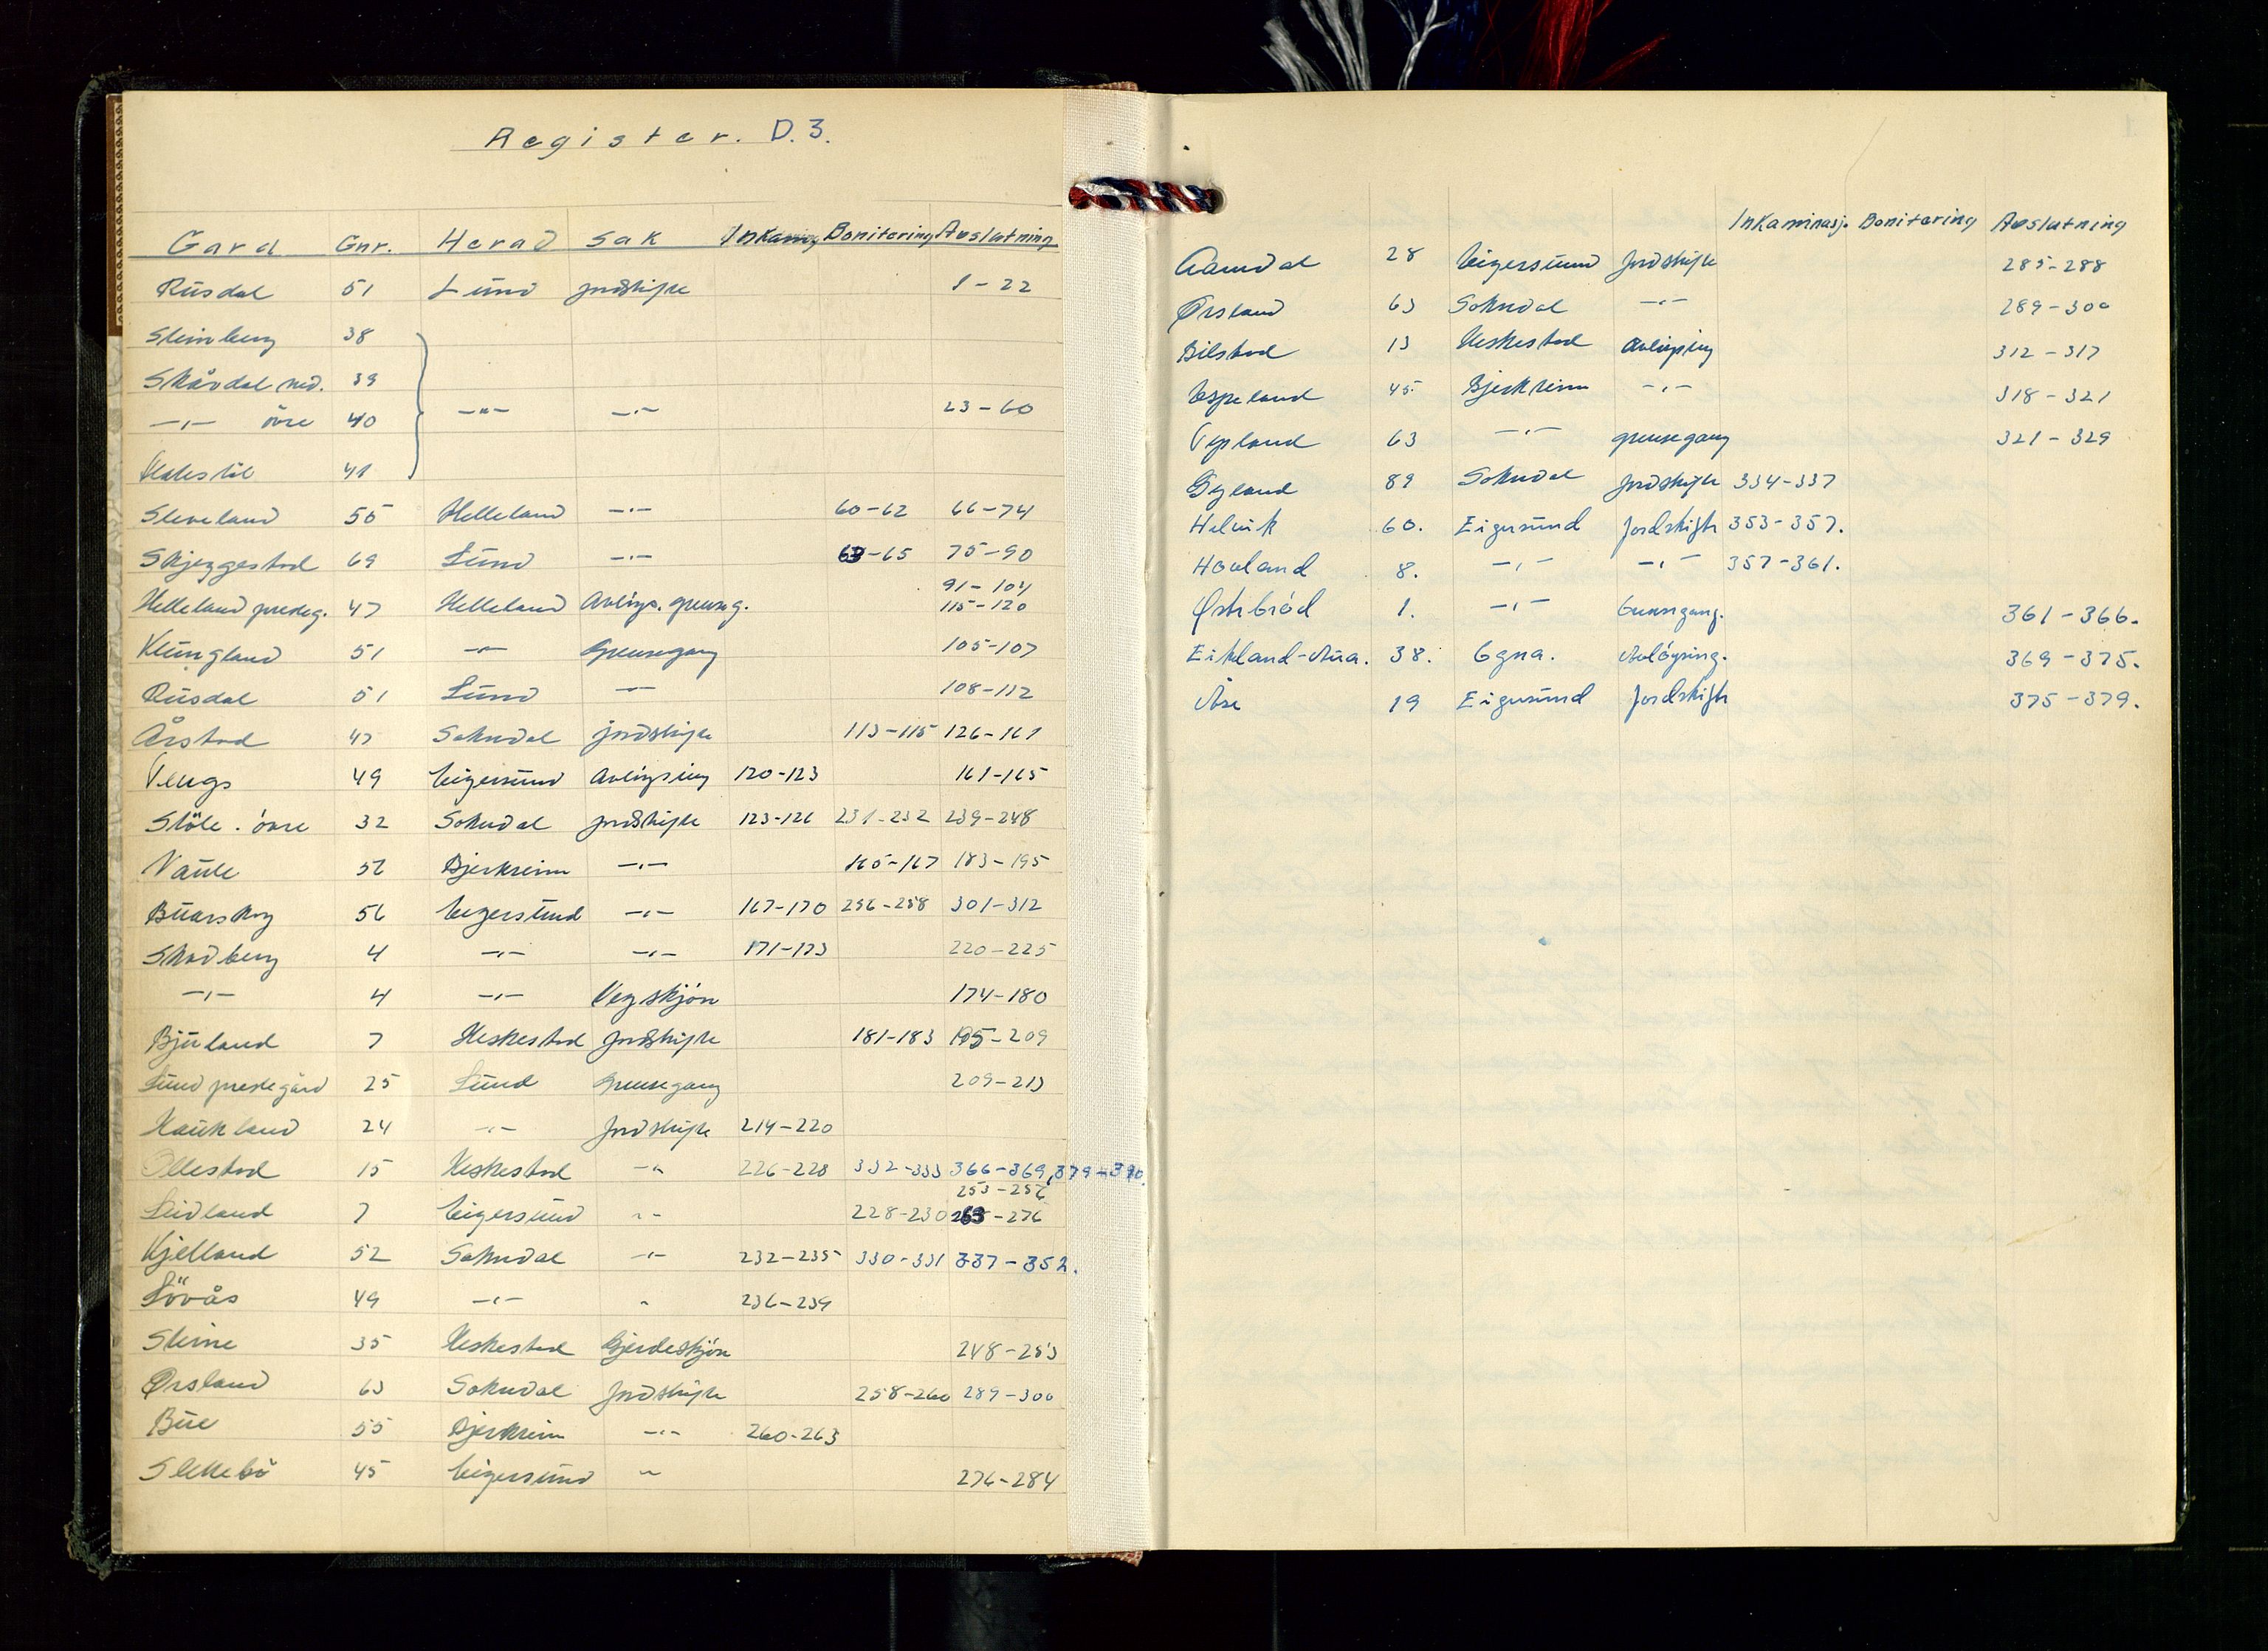 Register. D. 3.
Gard Gnr. Herad Sak Inkaming Bonitering Avslutning
Rusdal 51 Lund jordskifte 1-22
Steinberg 38
Skårdal ned. 39
-"- övre 40 -"- -"- 23-60
41
Sleveland 55 Helleland -"- 60-62 66-74
Skjeggestad 69 Lund -"- 63-65 75-90
91-104
Helleland presteg. 47 Helleland Avløys. grenseg. 115-120
Klungland 51 -"- Grensegang 105-107
Rusdal 51 Lund -"- 108-112
Årstad 47 Sokndal jordskifte 113-115 126-161
Tengs 49 Eigersund Avløysing 120-123 161-165
Støle. övre 32 Sokndal jordskifte 123-126 231-232 239-248
Naule 52 Bjerkreim -"- 165-167 183-195
Buarskog 56 Eigersund -"- 167-170 256-258 301-312
Skadberg 4 -"- -"- 171-173 220-225
-"- 4 -"- Vegskjön 174-180
Bjuland 7 Heskestad Jordskifte 181-183 195-209
Lund prestegård 25 Lund Grensegang 209-213
Haukland 24 -"- Jordskifte 214-220
Ollestad 15 Heskestad -"- 226-228 332-333 366-369, 379-390.
253-256
Leidland 7 Eigersund -"- 228-230 263-276
Kjelland 52 Sokndal -"- 232-235 330-331 337-352.
Lövås 49 -"- " 236-239
Steine 35 Heskestad Gjerdeskjön 248-253
Ørsland 63 Sokndal Jordskifte 258-260 289-300
Bue 55 Bjerkreim -"- 260-263
Slettebö 45 Eigersund -"- 276-284
Inkaminasj. Bonitering Avslutning
Aamdal 28 Eigersund Jordskifte 285-288
Ørsland 63 Sokndal -"- 289-300
Bilstad 13 Heskestad Avløysing 312-317
Espeland 45 Bjerkreim -"- 318-321
Tepland 63 -"- grensegang 321-329
Gyland 89 Sokndal Jordskifte 334-337
Helvik 60. Eigersund Jordskifte 353-357.
Hovland 8. -"- -"- 357-361.
Østebröd 1. -"- Grensegang. 361-366.
Eikland-Aua. 38. Ogna. Avlöysing. 369-375.
Åse 19 Eigersund Jordskifte 375-379.